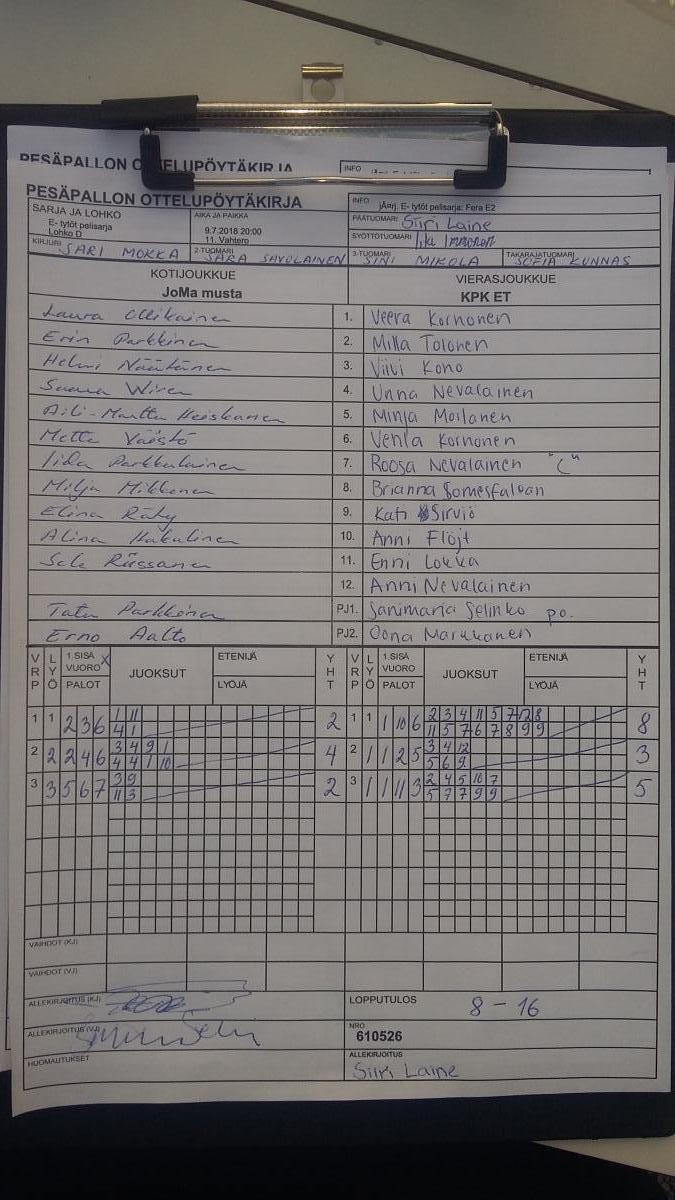 PESÄPALLON OTTELUPÖYTÄKIRJA
INFO
PESÄPALLON OTTELUPÖYTÄKIRJA
INFO
jÄrj. E- tytöt pelisarja: Fera E2
SARJA JA LOHKO
E- tytöt pelisarja
Lohko D
AIKA JA PAIKKA
9.7.2018 20:00
11. Vahtero
PÄÄTUOMARI Siiri Laine
SYÖTTÖTUOMARI Iika Immonen
KIRJURI SARI MOKKA
2-TUOMARI SARA SAVOLAINEN
3-TUOMARI SINI MIKOLA
TAKARAJATUOMARI SOFIA KUNNAS
KOTIJOUKKUE
JoMa musta
VIERASJOUKKUE
KPK ET
Laura Ollikainen 1. Veera Korhonen
Erin Parkkinen 2. Milla Tolonen
Helmi Näätänen 3. Viivi Kono
Saana Wiren 4. Unna Nevalainen
Aili-Martta Keiskanen 5. Minja Moilanen
Metta Väistö 6. Venla Korhonen
Iida Parkkulainen 7. Roosa Nevalainen "C"
Milja Mikkonen 8. Brianna
Elina Räty 9. Kati Sirviö
Alina Hakulinen 10. Anni Flöjt
Rüssanen 11. Enni Lokka
12. Anni Nevalainen
Tatu Parkkonen PJ1. Sanimaria Selinko po.
Erno Aalto PJ2. Oona Markkanen
VRP LYÖ 1.SISÄ VUORO X PALOT JUOKSUT ETENIJÄ LYÖJÄ YHT VRP LYÖ 1.SISÄ VUORO PALOT JUOKSUT ETENIJÄ LYÖJÄ YHT
1 1 2 3 6 1 11 2 1 1 1 10 6 2 3 4 11 5 7 12 8 8
4 1 11 5 7 6 7 8 9 9
2 2 2 4 6 3 4 9 1 4 2 1 1 2 5 3 4 12 3
4 4 1 10 5 6 9
3 3 5 6 7 3 9 2 3 1 1 11 3 2 4 5 10 7 5
11 3 5 7 7 9 9
VAIHDOT (KJ)
VAIHDOT (VJ)
ALLEKIRJOITUS (KJ)
LOPPUTULOS 8 - 16
ALLEKIRJOITUS (VJ)
NRO
610526
HUOMAUTUKSET
ALLEKIRJOITUS
Siiri Laine